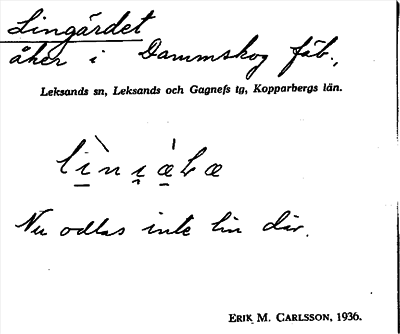 Lingärdet
åker i Dammskog fäb.,
Leksands sn, Leksands och Gagnefs tg, Kopparbergs län.
Nu odlas inte lin där.
ERIK M. CARLSSON, 1936.